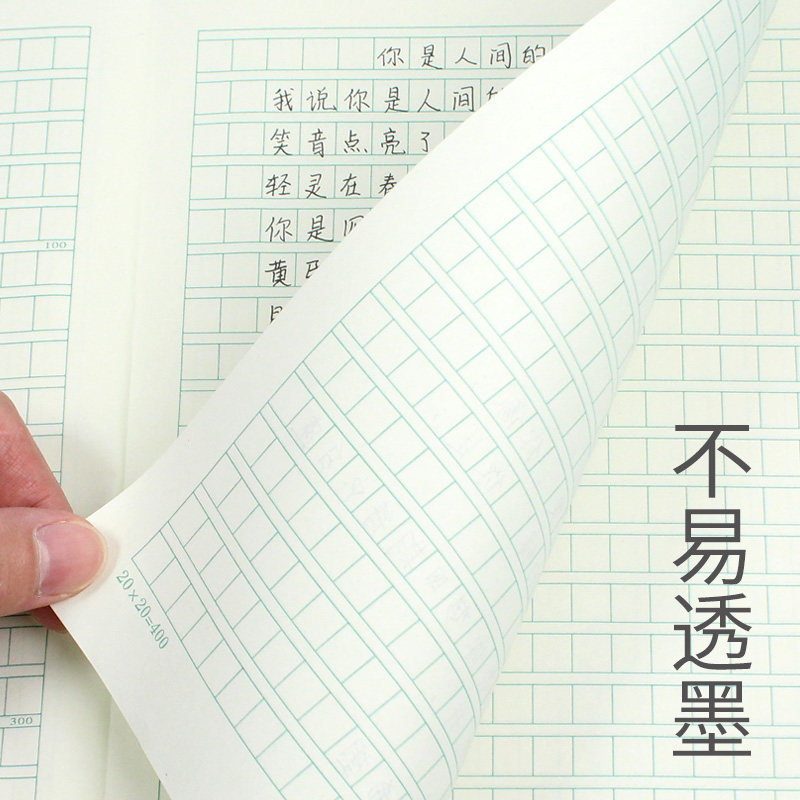 你是人间的
我说你是人间
笑音点亮了
轻灵在春
你是四
黄
100
300
20×20=400
不易透墨